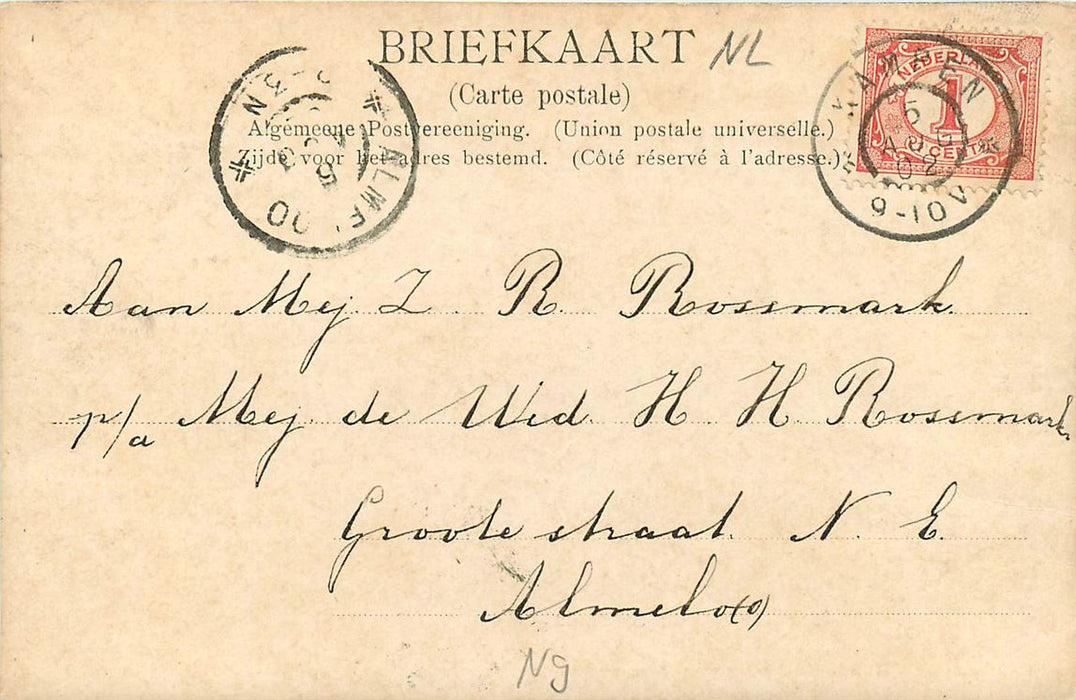 BRIEFKAART NL
(Carte postale)
Algemeene Postvereeniging. (Union postale universelle.)
Zijde voor het adres bestemd. (Côté réservé à l'adresse.)
NEDERLAND
1
CENT
KAMPEN
5
AUG
02
9-10V
3 N
Aan Mej. Z. R. Rossmark
p/a Mej. de Wed. H. H. Rossmark
Groote straat. N. E.
Almelo(o)
Ng